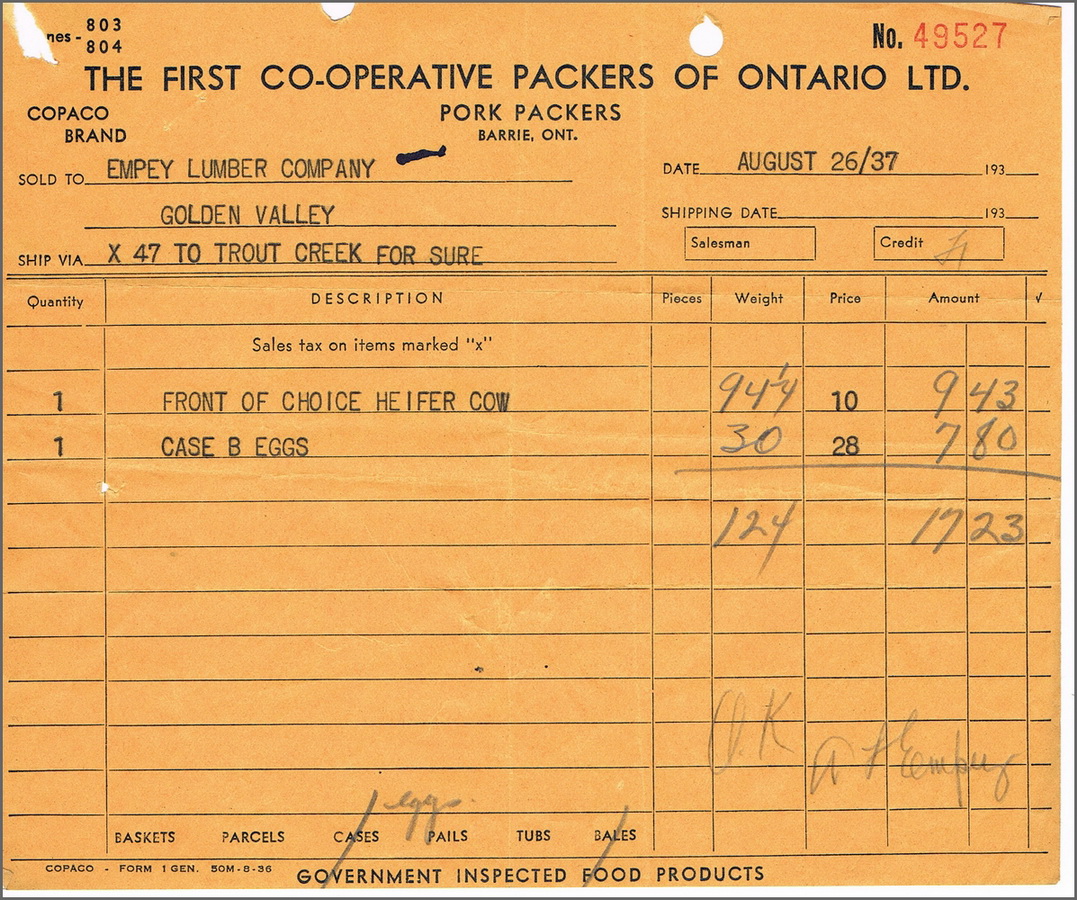 nes - 803
804
No. 49527
THE FIRST CO-OPERATIVE PACKERS OF ONTARIO LTD.
COPACO
BRAND
PORK PACKERS
BARRIE, ONT.
SOLD TO EMPEY LUMBER COMPANY
DATE AUGUST 26/37 193
GOLDEN VALLEY
SHIPPING DATE 193
SHIP VIA X 47 TO TROUT CREEK FOR SURE
Salesman Credit
Quantity DESCRIPTION Pieces Weight Price Amount √
Sales tax on items marked "x"
1 FRONT OF CHOICE HEIFER COW 94 1/4 10 9 43
1 CASE B EGGS 30 28 7 80
124 17 23
O.K
Empey
1 eggs
BASKETS PARCELS CASES PAILS TUBS BALES
COPACO - FORM 1 GEN. 50M-8-36
GOVERNMENT INSPECTED FOOD PRODUCTS